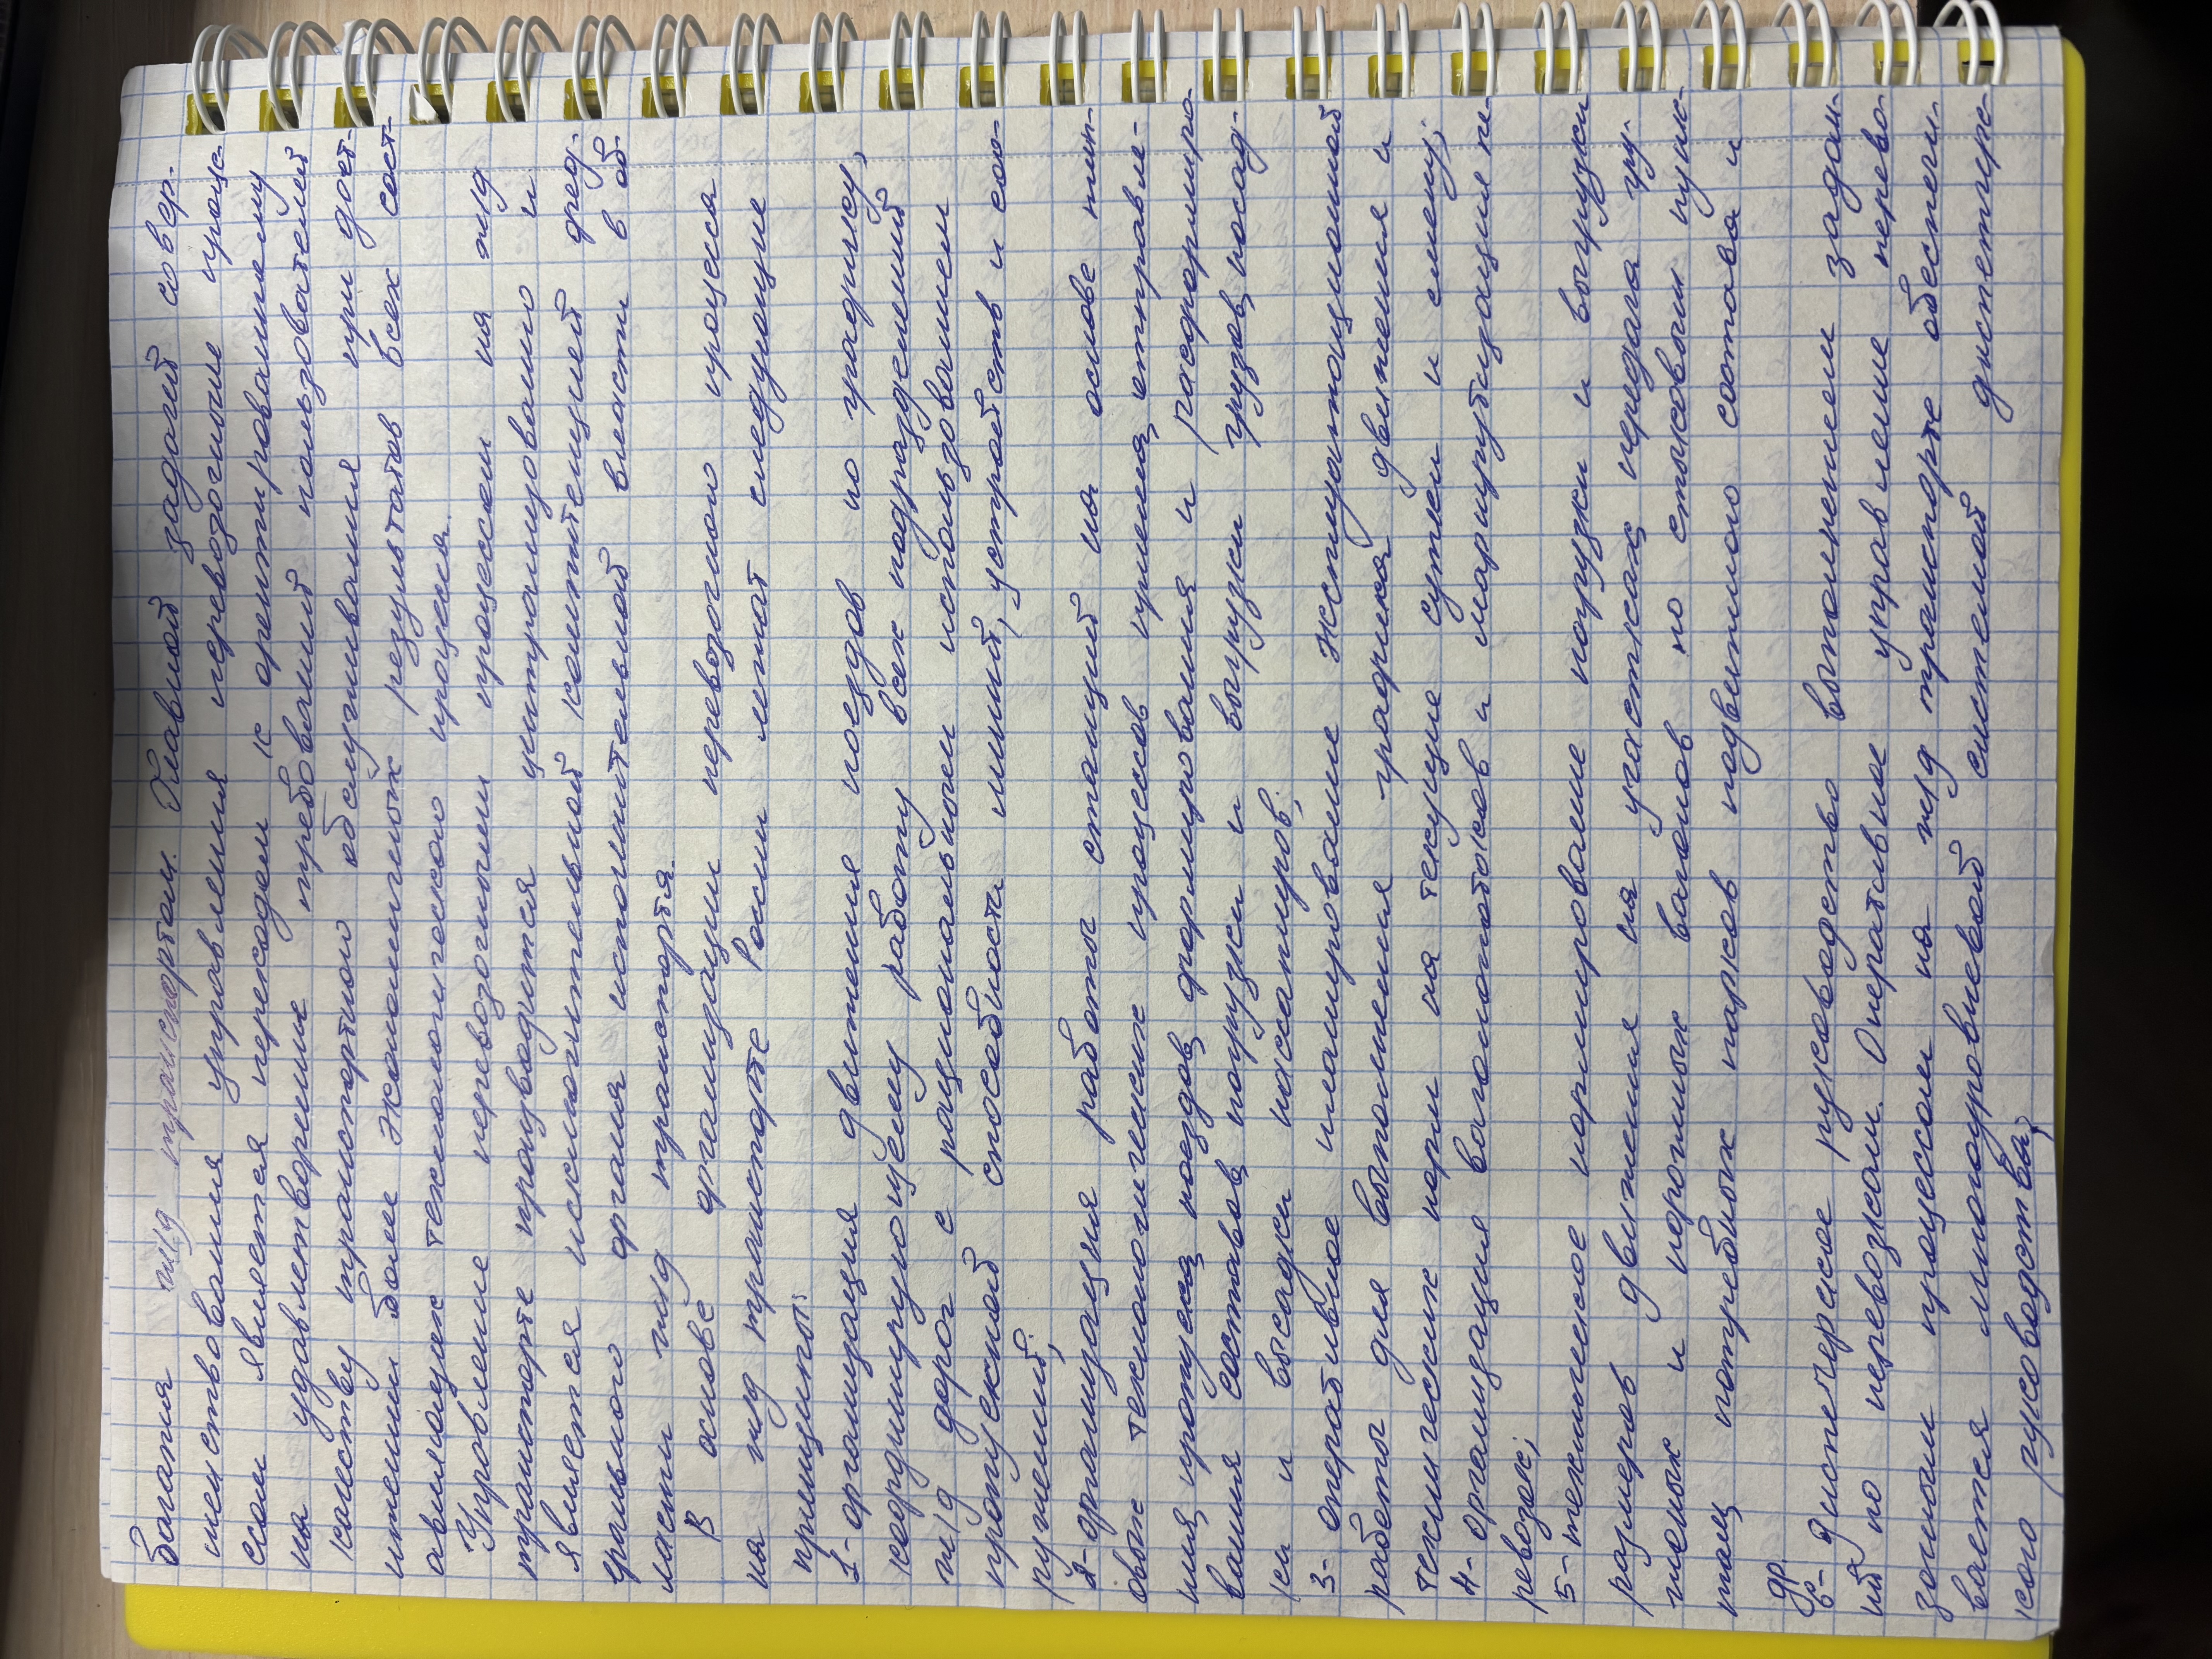 бования ж/д транспортом. Главной задачей совер-
шенствования управления перевозочные процес-
сом является переходом к ориентированному
на удовлетворение требований пользователей
качеству транспортного обслуживания при дост-
ижении более экономических результатов всех сост-
авляющих технологического процесса.
Управление перевозочным процессом на ж/д
транспорте производится централизовано и
является исключительной компетенцией феде-
рального органа исполнительной власти в об-
ласти ж/д транспорта.
В основе организации перевозочного процесса
на ж/д транспорте России лежат следующие
принципы:
1- организация движения поездов по графику,
координирующему работу всех подразделений
ж/д дорог с рациональным использованием
пропускной способности линий, устройств и соо-
ружений;
2- организация работы станций на основе тип-
овых технологических процессов приема, отправле-
ния, пропуска поездов, формирования и расформиро-
вания составов, погрузки и выгрузки грузов, посад-
ки и высадки пассажиров;
3- оперативное планирование эксплуатационной
работы для выполнения графика движения и
технических норм на текущие сутки и смену;
4- организация вагонопотоков и маршрутизация пе-
ревозок;
5- техническое нормирование погрузки и выгрузки
размеров движения на участках, передача гру-
женых и порожних вагонов по стыковым пунк-
там, потребных парков подвижного состава и
др.
6- Диспетчерское руководство выполнением задан-
ий по перевозкам. Оперативное управление перево-
зочным процессом на ж/д транспорте обеспечи-
вается многоуровневой системой диспетчерс-
кого руководства,